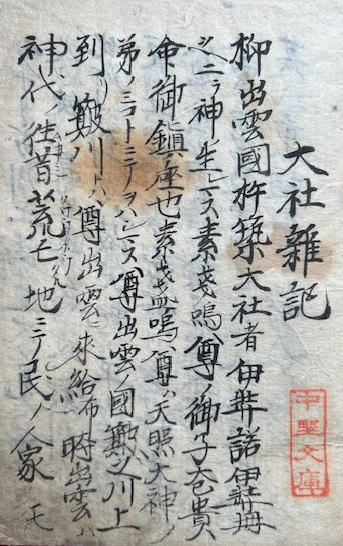 大社雜記
柳出雲國杵築大社者伊弉諾伊弉冊
之二神生ス素戔嗚尊ノ御子大己貴
命御鎮座也素戔嗚尊ハ天照大神ノ
弟ノミコトニテ尊出雲ノ國簸之川上
到ル簸川上ハ尊出雲ニ来給布時出雲ハ
神代ノ往昔荒亡ノ地ニテ民ノ人家モ
文庫